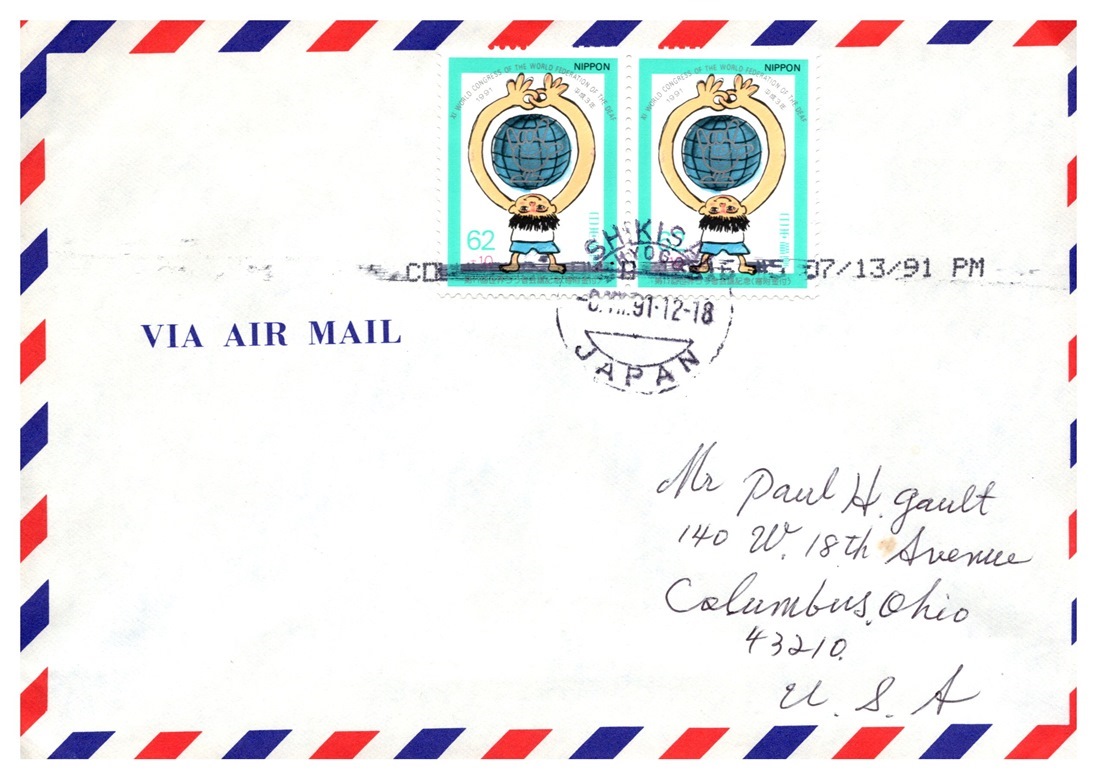 NIPPON
XI WORLD CONGRESS OF THE WORLD FEDERATION OF THE DEAF
1991 平成3年
62
+10
NIPPON
XI WORLD CONGRESS OF THE WORLD FEDERATION OF THE DEAF
1991 平成3年
SHIKISA
HYOGO
91-12-18
JAPAN
07/13/91 PM
VIA AIR MAIL
Mr Paul H. Gault
140 W. 18th Avenue
Columbus, Ohio
43210.
U. S. A